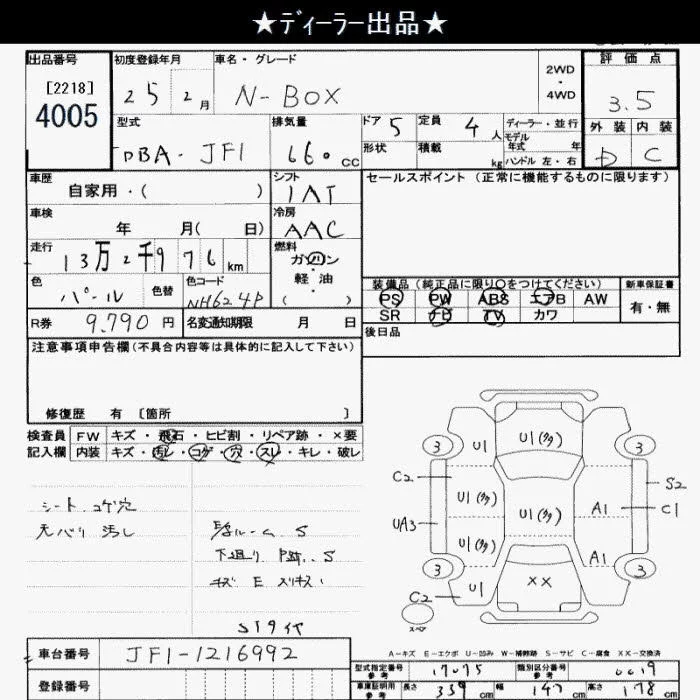 ★ディーラー出品★
出品番号
[2218]
4005
初度登録年月
25 2月
車名・グレード
N-BOX
2WD
・
4WD
評価点
3.5
外装 内装
D C
型式
DBA-JF1
排気量
660 cc
ドア 5
形状
定員 4人
積載 kg
ディーラー・並行
モデル
年式 年
ハンドル 左・右
車歴
自家用・( )
シフト
IAT
セールスポイント (正常に機能するものに限ります)
車検
年 月( 日)
冷房
AAC
走行
13万2千976km
燃料
ガソリン
・
軽油
( )
色
パール
色替
色コード
NH624P
装備品 (純正品に限り○をつけてください)
PS PW ABS エアB AW
SR ナビ TV カワ
新車保証書
有・無
R券 9,790円
名変通知期限 月 日
後日品
注意事項申告欄(不具合内容等は具体的に記入して下さい)
修復歴 有 [箇所 ]
検査員
記入欄
FW キズ・飛石・ヒビ割・リペア跡・×要
内装 キズ・汚レ・コゲ・穴・スレ・キレ・破レ
シート コゲ穴
天バリ 汚し
S
下廻り S
キズ E
S19
3 U1 U1(多) 3
C2 S2
U1(多) A1 C1
UA3 U1(多)
U1(多) A1
3 3
U1 XX
C2
スペア
A-キズ E-エクボ U-凹み W-補修跡 S-サビ C-腐食 XX-交換済
車台番号 JF1-1216992
登録番号
型式指定番号
参考
17075
類別区分番号
参考
0019
車庫証明用
参考
長さ 339cm 幅 147cm 高さ 178cm